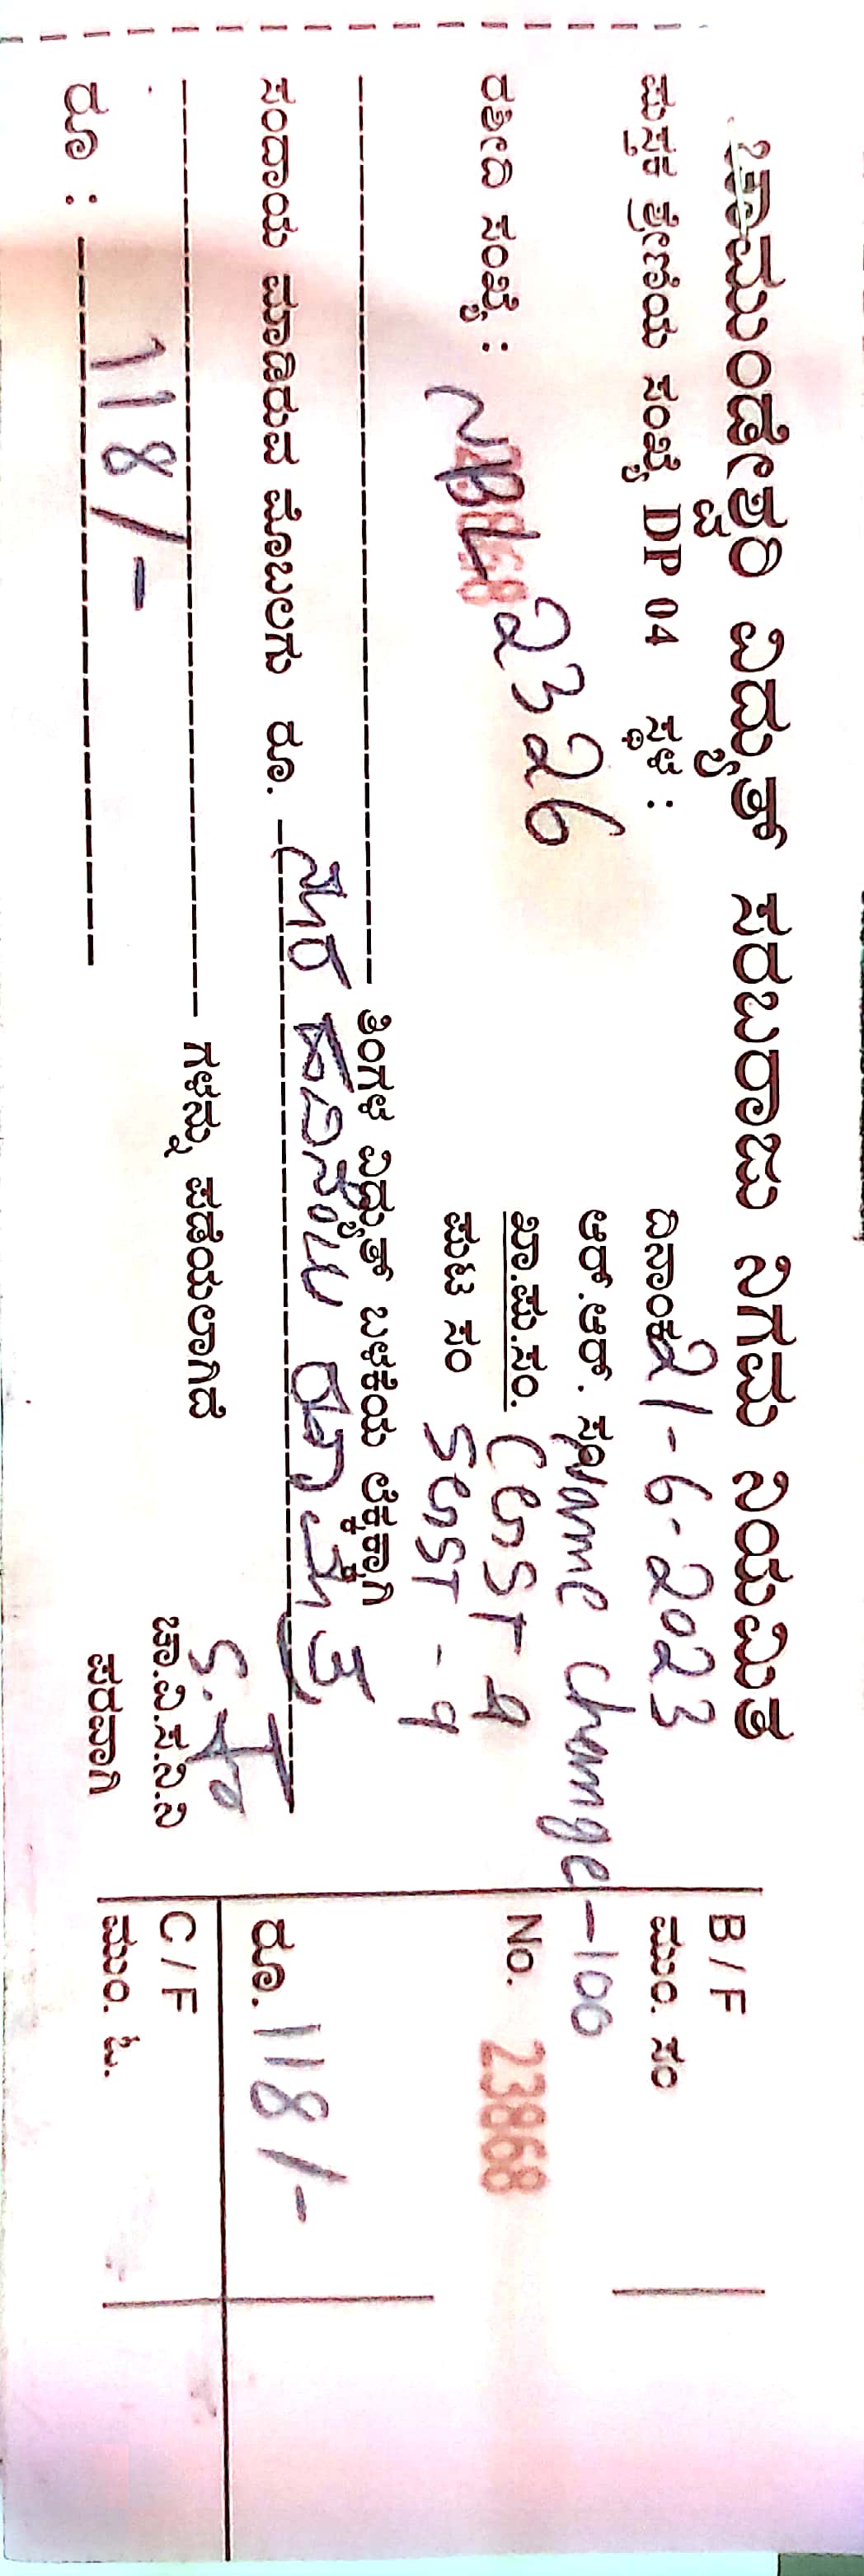 ಚಾಮುಂಡೇಶ್ವರಿ ವಿದ್ಯುತ್ ಸರಬರಾಜು ನಿಗಮ ನಿಯಮಿತ
ಪುಸ್ತಕ ಶ್ರೇಣಿಯ ಸಂಖ್ಯೆ DP 04 ಸ್ಥಳ :
ದಿನಾಂಕ 21-6-2023
ಆರ್.ಆರ್. ಸಂ Name change - 100
ರಶೀದಿ ಸಂಖ್ಯೆ : NBL 2326
ಖಾ.ಪು.ಸಂ. CGST 9
ಪುಟ ಸಂ SGST - 9
ತಿಂಗಳ ವಿದ್ಯುತ್ ಬಳಕೆಯ ಲೆಕ್ಕಕ್ಕಾಗಿ
ಸಂದಾಯ ಮಾಡಿರುವ ಮೊಬಲಗು ರೂ. ನೂರ ಹದಿನೆಂಟು ರೂ ಮಾತ್ರ
ಗಳನ್ನು ಪಡೆಯಲಾಗಿದೆ
ರೂ : 118/-
ಚಾ.ವಿ.ಸ.ನಿ.ನಿ
ಪರವಾಗಿ
B / F
ಪುಂ. ಸಂ
No. 23868
ರೂ. 118/-
C / F
ಪುಂ. ಒ.